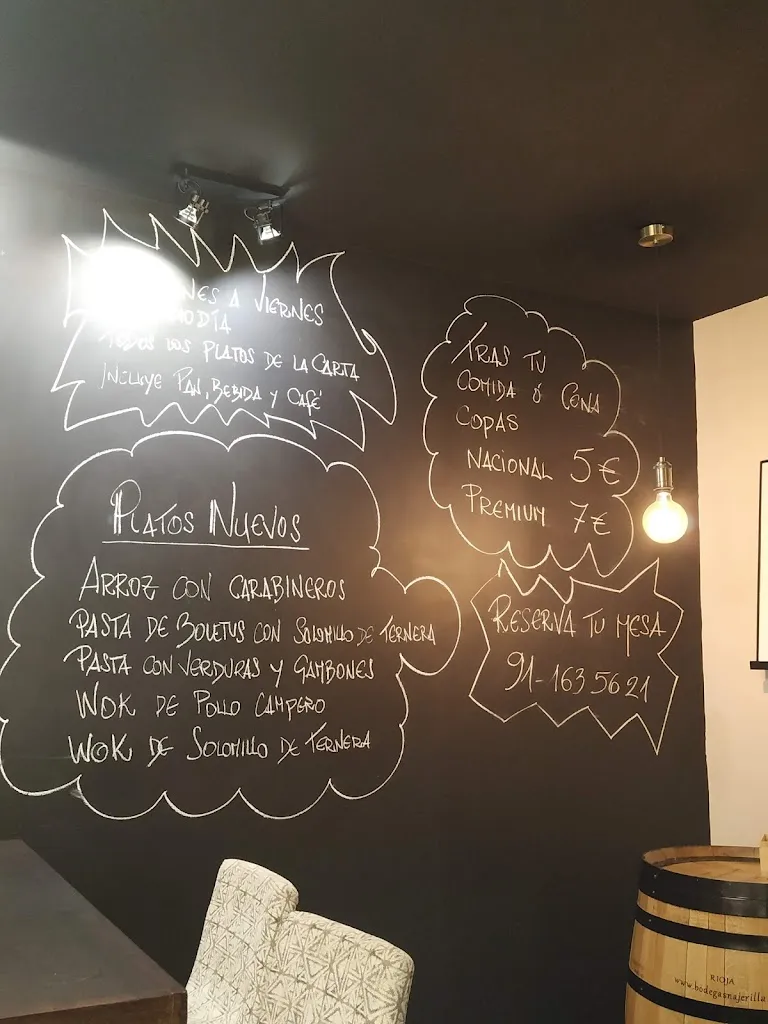 A VIERNES
PLATOS DE LA CARTA
INCLUYE PAN, BEBIDA Y CAFÉ
PLATOS NUEVOS
ARROZ CON CARABINEROS
PASTA DE BOLETUS CON SOLOMILLO DE TERNERA
PASTA CON VERDURAS Y GAMBONES
WOK DE POLLO CAMPERO
WOK DE SOLOMILLO DE TERNERA
TRAS TU
COMIDA Ó CENA
COPAS
NACIONAL 5€
PREMIUM 7€
RESERVA TU MESA
91-163 56 21
RIOJA
www.bodegasnajerilla